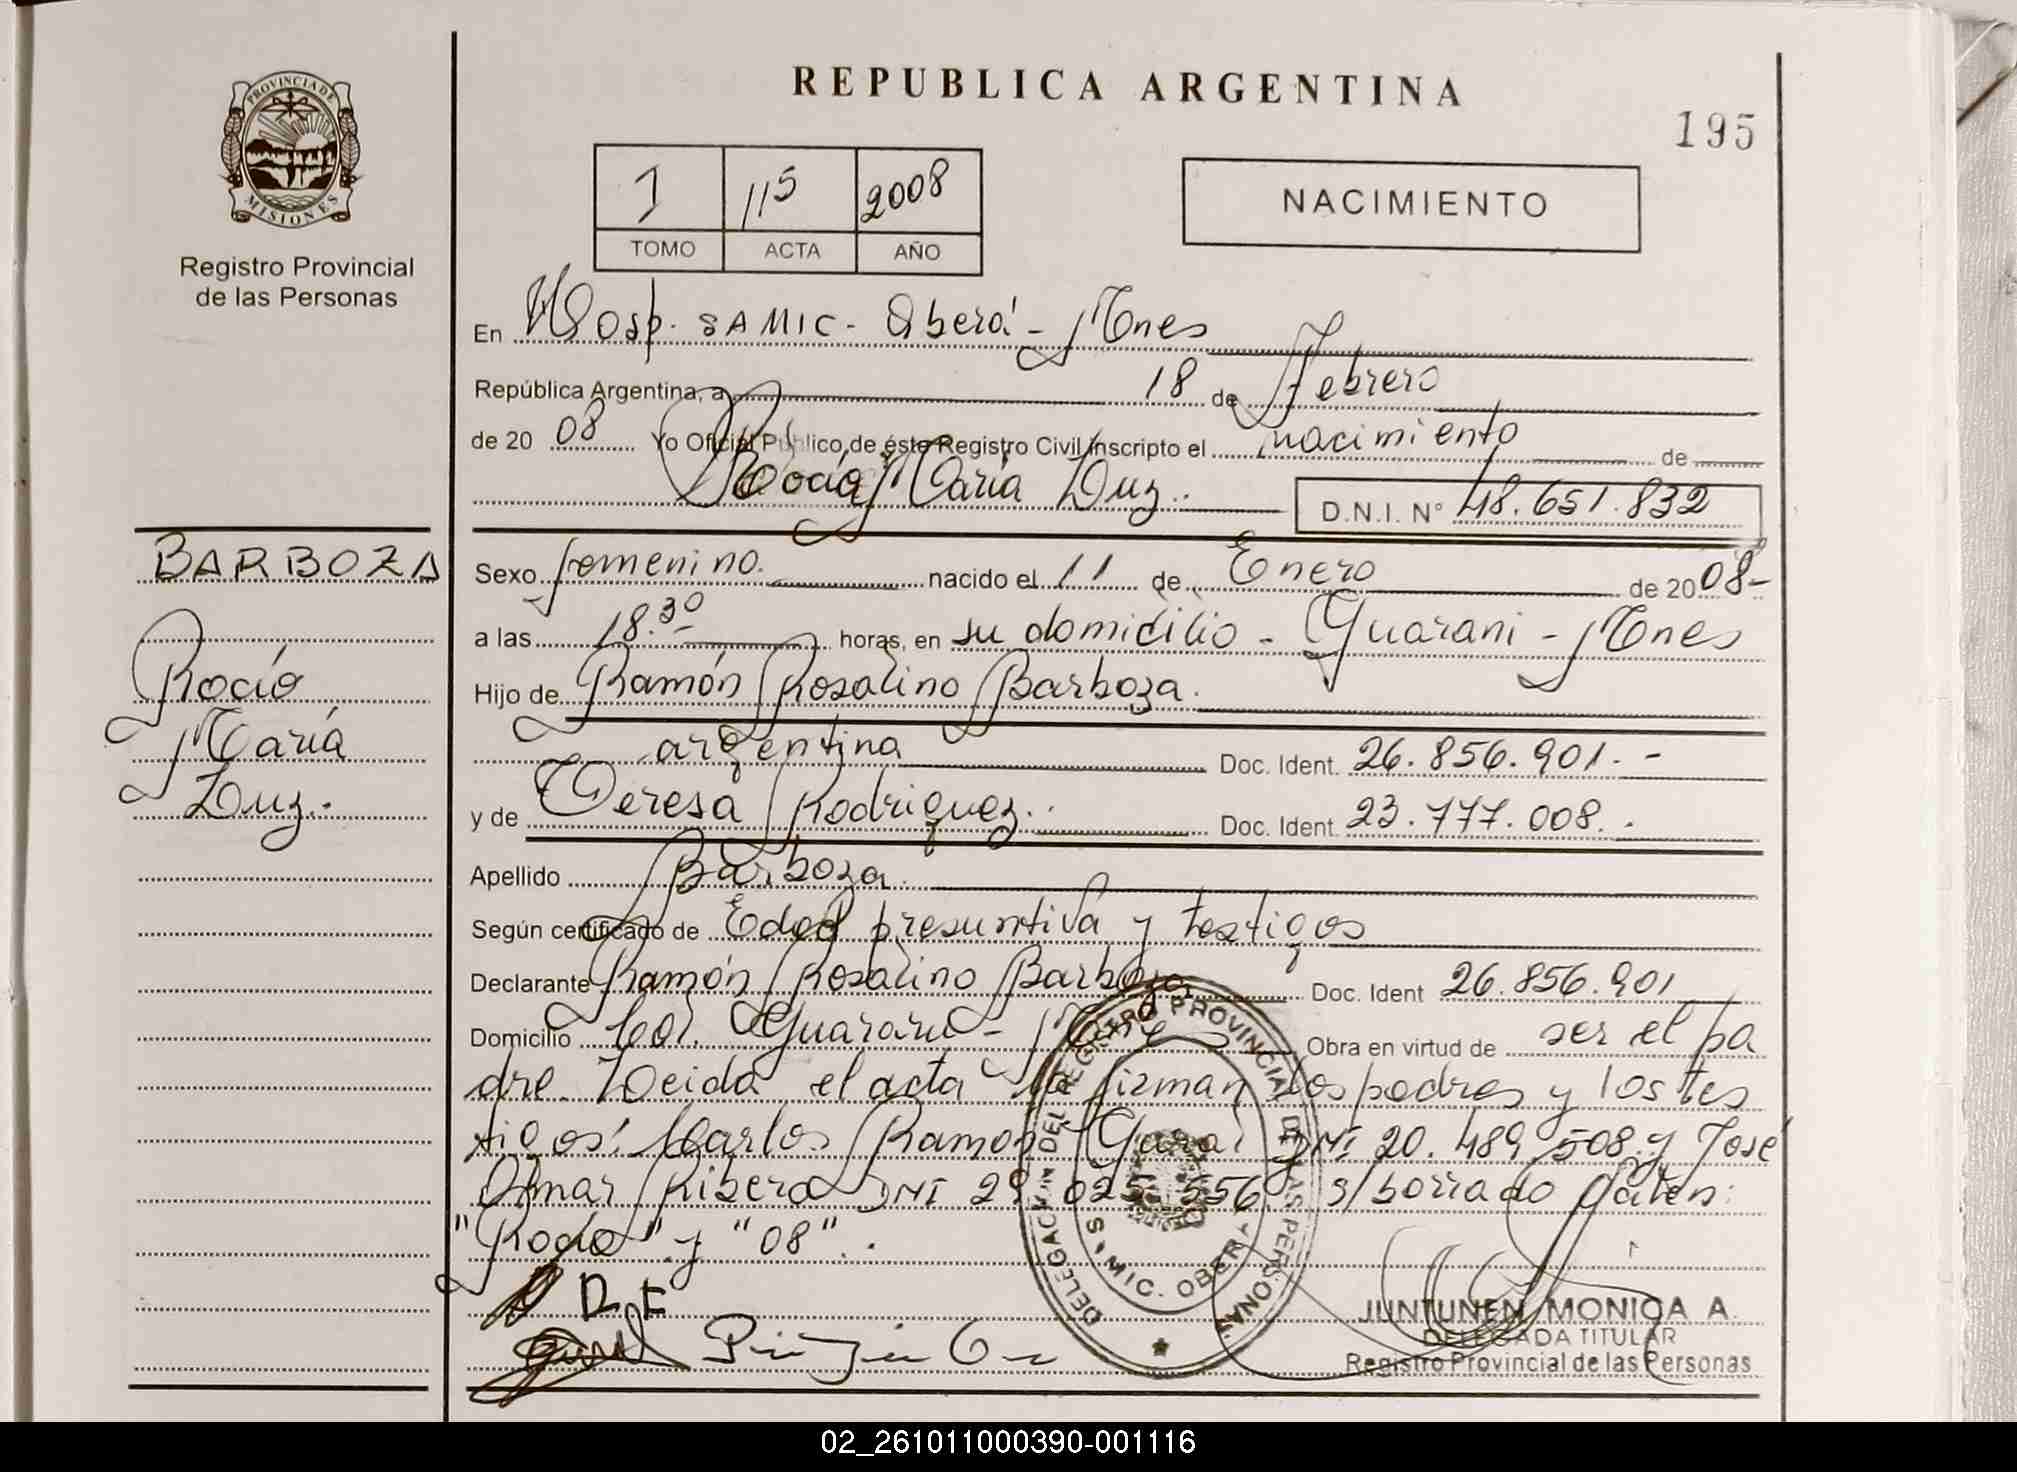 REPUBLICA ARGENTINA
195
PROVINCIA DE
MISIONES
Registro Provincial
de las Personas
1 115 2008
TOMO ACTA AÑO
NACIMIENTO
En Hosp. SAMIC - Oberá - Mnes
República Argentina, a 18 de Febrero
de 20 08 Yo Oficial Público de éste Registro Civil Inscripto el nacimiento de
Rocío María Luz
D.N.I. N° 48.651.832
BARBOZA
Rocío
María
Luz.
Sexo femenino. nacido el 11 de Enero de 2008-
a las 18.30 horas, en su domicilio - Guaraní - Mnes
Hijo de Ramón Rosalino Barboza.
argentina Doc. Ident. 26.856.901.-
y de Teresa Rodriguez. Doc. Ident. 23.777.008.-
Apellido Barboza.
Según certificado de Edad presuntiva y testigos
Declarante Ramón Rosalino Barboza Doc. Ident 26.856.901
Domicilio Col. Guaraní - Mnes Obra en virtud de ser el pa
dre. Leida el acta la firman los padres y los tes
tigos: Carlos Ramón DNI 20.489.508 y José
Omar Ribero DNI 29.025.556. s/borrado
"Rocío" y "08".
DELEGACIÓN DEL REGISTRO PROVINCIAL DE LAS PERSONAS
SAMIC. OBERA
JUNTUNEN, MONICA A.
DELEGADA TITULAR
Registro Provincial de las Personas
02_261011000390-001116